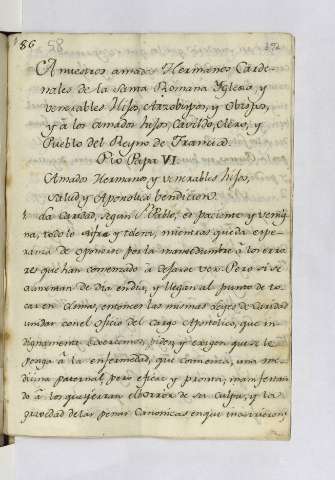 86 58
A nuestros amados Hermanos Carde-
nales de la Santa Romana Yglesia, y
venerables Hijos, Arzobispos, y Obispos,
y à los amados hijos, Cavildos, Clero, y
Pueblo del Reyno de Francia.
Pio Papa VI.
Amados Hermanos, y venerables hijos,
salud y Apostolica bendicion.
La Caridad, segun S. Pablo, es paciente y venig-
na, todo lo sufre y tolera, mientras queda espe-
ranza de oponerse por la mansedumbre à los erro-
res que han comenzado à dejarse ver. Pero si se
aumentan de dia en dia, y llegan al punto de to-
car en cisma, entonces las mismas leyes de Caridad
unidas con el oficio del cargo Apostolico, que in-
dignamente exercemos, piden y exigen que se le
ponga à la enfermedad, que comienza, una me-
dicina paternal pero eficaz y pronta, manifestan-
do à los que yerran el horror de su culpa, y la
gravedad de las penas Canonicas en que incurrieron